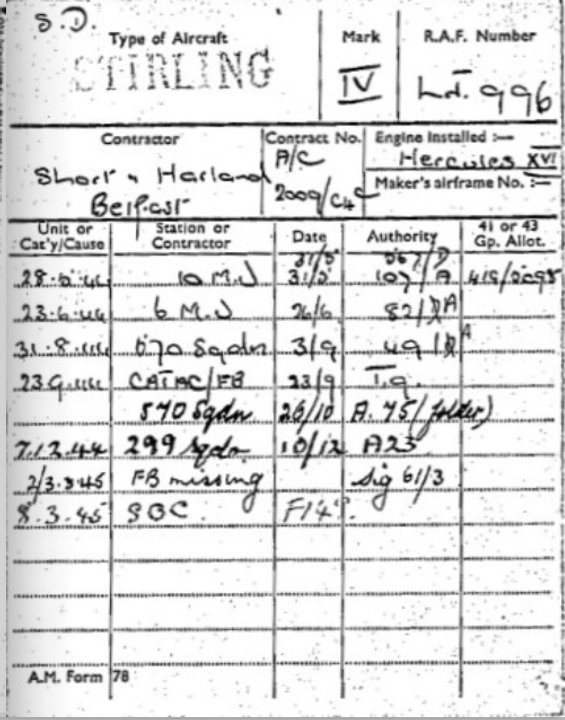 S.D.
Type of Aircraft Mark R.A.F. Number
STIRLING IV LJ. 996
Contractor Contract No. Engine Installed :—
Short & Harland A/C Hercules XVI
Belfast 2009/C4C Maker's airframe No. :—
Unit or Cat'y/Cause Station or Contractor Date Authority 41 or 43 Gp. Allot.
31/5
28.5.44 10 M.U 31/5 107/A
23.6.44 6 M.U 26/6 82/A
31.8.44 570 Sqdn 3/9 49/A
23.9.44 CAT AC/FB 23/9
570 Sqdn 26/10 A.75 (folder)
7.12.44 299 Sqdn 10/12 A23
2/3.3.45 FB missing Sig 61/3
8.3.45 SOC. F14
A.M. Form 78